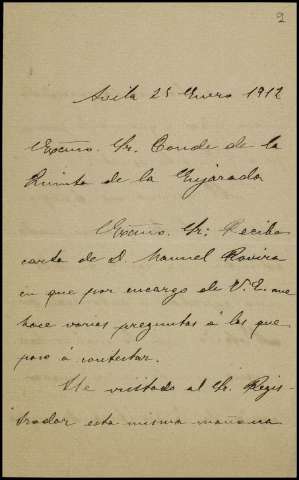 2
Avila 25 Enero 1912
Excmo. Sr. Conde de la
Quinta de la Enjarada
Excmo. Sr: Recibo
carta de D. Manuel Rovira
en que por encargo de V.E. me
hace varias preguntas á las que
paso á contestar.
He visitado al Sr. Regis-
trador esta misma mañana